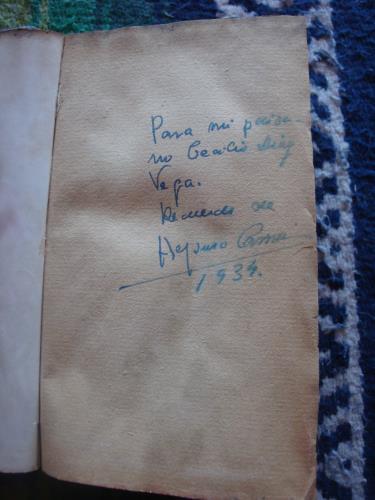 Para mi paisa-
no Cecilio Díaz
Vega.
Recuerdo de
Alfonso
1934.